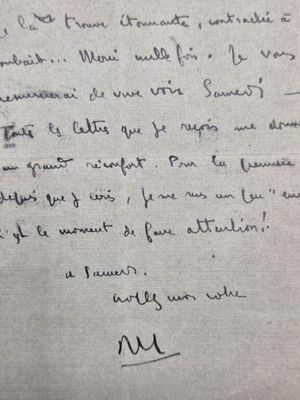 la trouve étonnante, contractée à
souhait... Merci mille fois. Je vous
remercierai de vive voix Samedi —
Toutes les lettres que je reçois me donnent
un grand réconfort. Pour la première
depuis que j'écris, je me vois un "peu"
c'est le moment de faire attention!
à Samedi.
votre